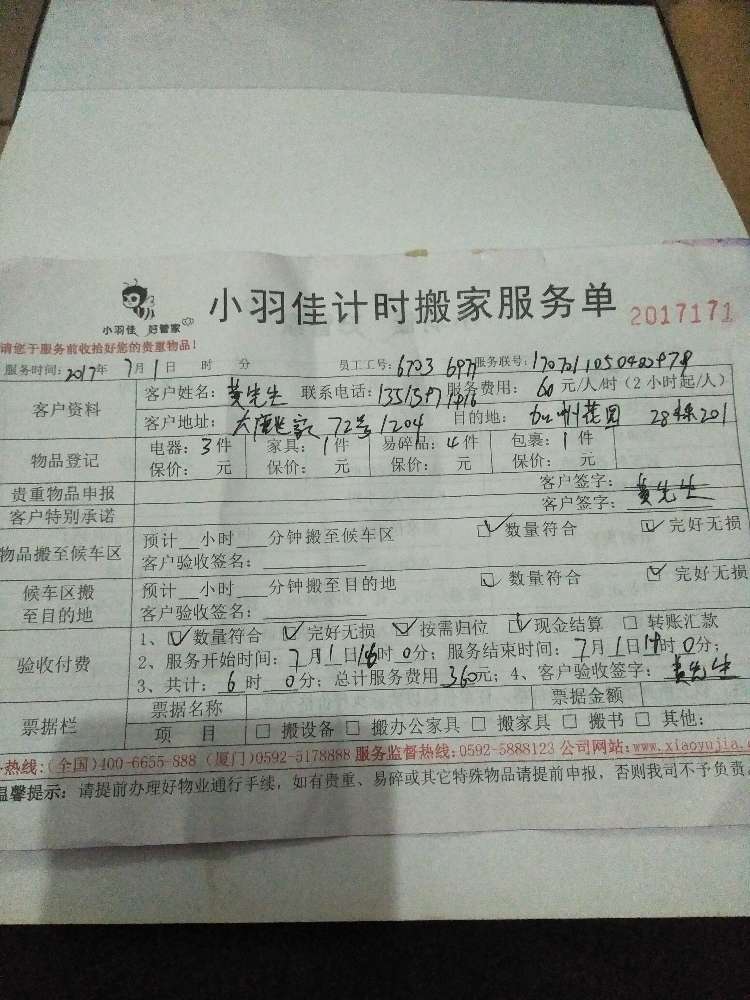 小羽佳 好管家
小羽佳计时搬家服务单 2017171
请您于服务前收拾好您的贵重物品!
服务时间:2017年 7月1日 时 分 员工工号:6703 6977 服务联号:
客户资料 客户姓名:黄先生 联系电话: 服务费用:60元/人/时(2小时起/人)
客户地址: 72号1204 目的地: 州花园 28栋201
物品登记 电器:3件 家具:1件 易碎品:4件 包裹:1件
保价: 元 保价: 元 保价: 元 保价: 元
贵重物品申报 客户签字:
客户特别承诺 客户签字:黄先生
物品搬至候车区 预计__小时___分钟搬至候车区 ☑数量符合 ☑完好无损
客户验收签名:
候车区搬至目的地 预计__小时___分钟搬至目的地 ☑数量符合 ☑完好无损
客户验收签名:
验收付费 1、☑数量符合 ☑完好无损 ☑按需归位 ☑现金结算 □转账汇款
2、服务开始时间:7月1日16时0分;服务结束时间:7月1日19时0分;
3、共计:6时 0分;总计服务费用360元;4、客户验收签字:黄先生
票据栏 票据名称 票据金额
项 目 □搬设备 □搬办公家具 □搬家具 □搬书 □其他:
热线:(全国)400-6655-888 (厦门)0592-5178888 服务监督热线:0592-5888123 公司网站:www.xiaoyujia.
温馨提示:请提前办理好物业通行手续,如有贵重、易碎或其它特殊物品请提前申报,否则我司不予负责。